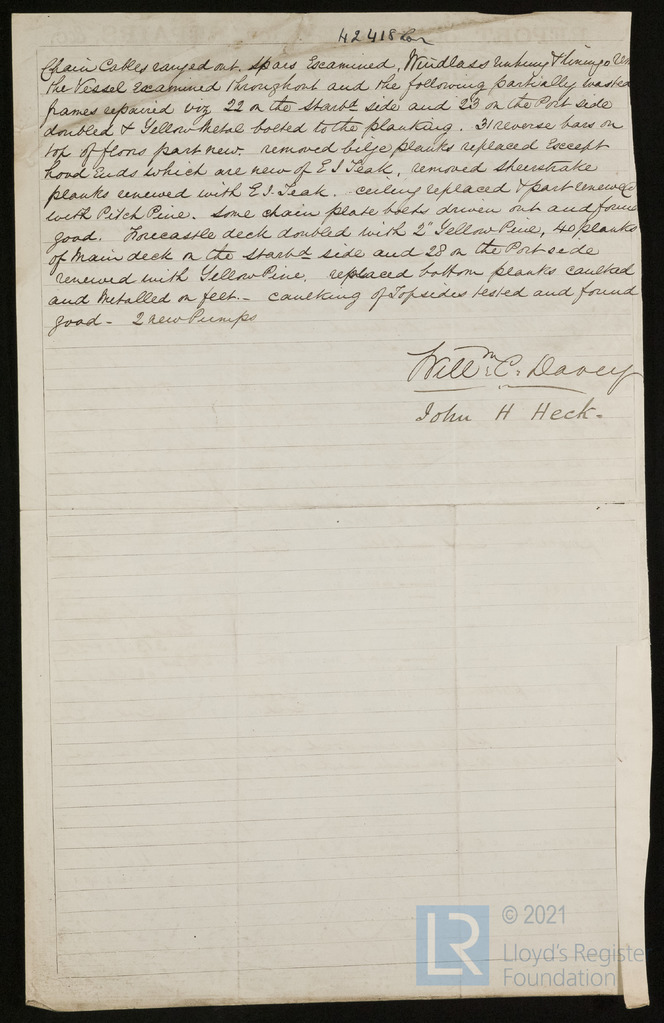 42418 Lon
Chain Cables ranged out. Spars Examined, Windlass unhung &
the Vessel Examined throughout and the following partially wasted
frames repaired viz 22 on the Starbd side and 23 on the Port side
doubled & Yellow Metal bolted to the planking. 31 reverse bars on
top of floors part new. removed bilge planks replaced Except
hood Ends which are new of E I Teak, removed Sheerstrake
planks renewed with E.I. Teak. ceiling replaced & part renewed
with Pitch Pine. Some chain plate bolts driven out and found
good. Forecastle deck doubled with 2" Yellow Pine, 40 planks
of Main deck on the Starbd side and 28 on the Port side
renewed with Yellow Pine. replaced bottom planks caulked
and Metalled on felt. - caulking of Topsides tested and found
good - 2 new Pumps
Willm C. Davey
John H Heck.
LR © 2021
Lloyd's Register
Foundation